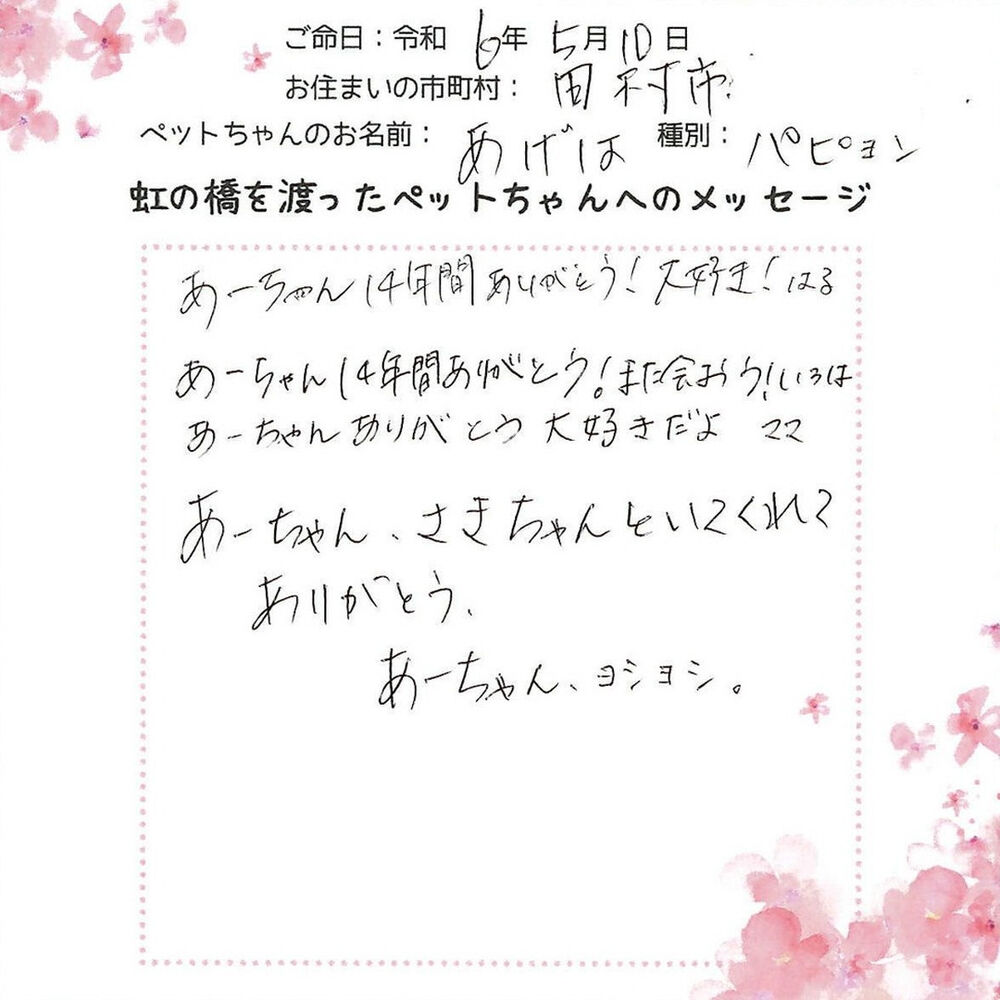 ご命日：令和 6年 5月10日
お住まいの市町村： 田村市
ペットちゃんのお名前： あげは 種別： パピヨン
虹の橋を渡ったペットちゃんへのメッセージ
あーちゃん14年間ありがとう！大好き！はる
あーちゃん14年間ありがとう！また会おう！いろは
あーちゃんありがとう 大好きだよ ママ
あーちゃん、さきちゃんといてくれて
ありがとう、
あーちゃん、ヨショシ。